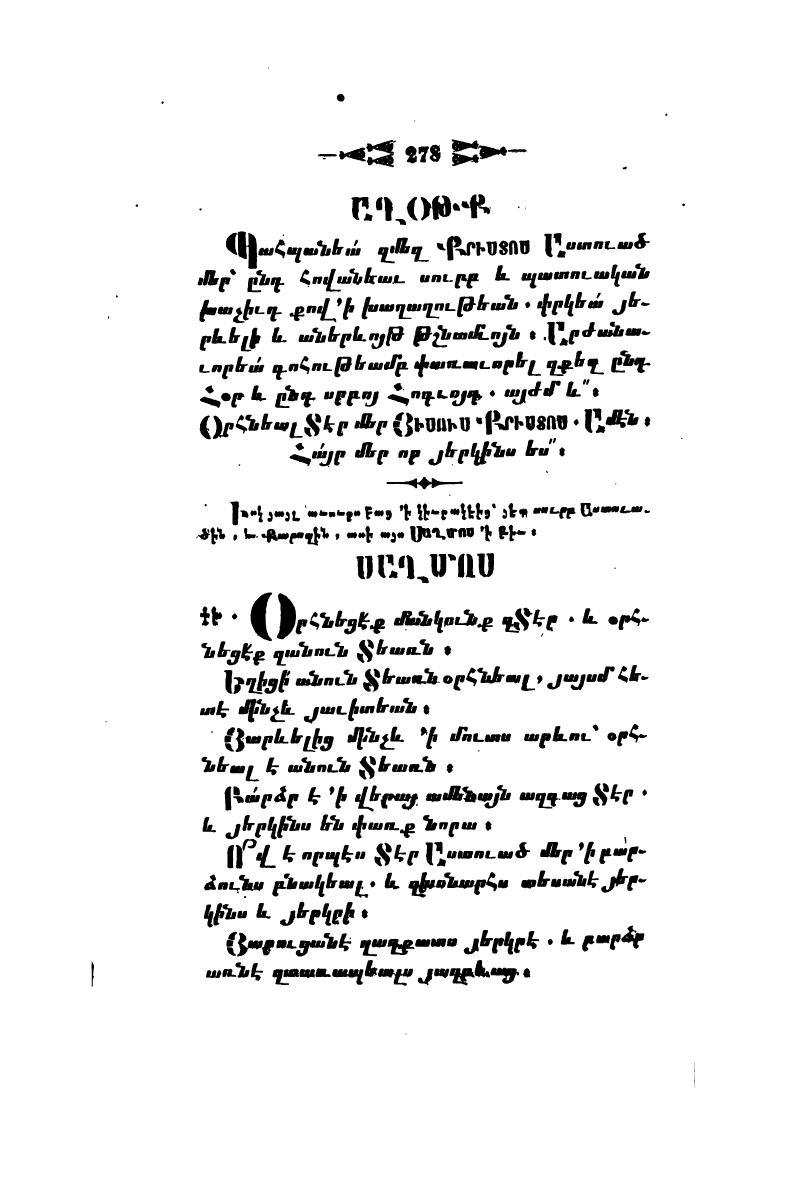 278
ԱՂՕԹՔ
Պահպանեա՛ զմեզ ՔՐԻՍՏՈՍ Աստուած
մեր՝ ընդ հովանեաւ սուրբ և պատուական
խաչիւդ քով ՚ի խաղաղութեան . փրկեա՛ յե-
րևելի և աներևոյթ թշնամւոյն ։ Արժանա-
ւորեա՛ գոհութեամբ փառաւորել զքեզ ընդ
Հօր և ընդ սրբոյ Հոգւոյդ . այժմ և՟ ։
Օրհնեալ Տէր մեր ՅԻՍՈՒՍ ՔՐԻՍՏՈՍ . Ամէն ։
Հա՛յր մեր որ յերկինս ես՟ ։
սուրբ Աստուա-
ծին , և քարոզին , ասի այս ՍԱՂՄՈՍ ՚ի
ՍԱՂՄՈՍ
Օրհնեցէ՛ք մանկունք զՏէր . և օրհ-
նեցէք զանուն Տեառն ։
Եղիցի՛ անուն Տեառն օրհնեալ , յայսմ հե-
տէ մինչև յաւիտեան ։
Յարևելից մինչև ՚ի մուտս արևու՝ օրհ-
նեալ է անուն Տեառն ։
Բա՛րձր է ՚ի վերայ ամենայն ազգաց Տէր .
և յերկինս են փառք նորա ։
Ո՞վ է որպէս Տէր Աստուած մեր ՚ի բար-
ձունս բնակեալ . և զխոնարհս տեսանէ յեր-
կինս և յերկրի ։
Յարուցանէ զաղքատս յերկրէ . և բարձր
առնէ զտառապեալս յաղբևաց ։